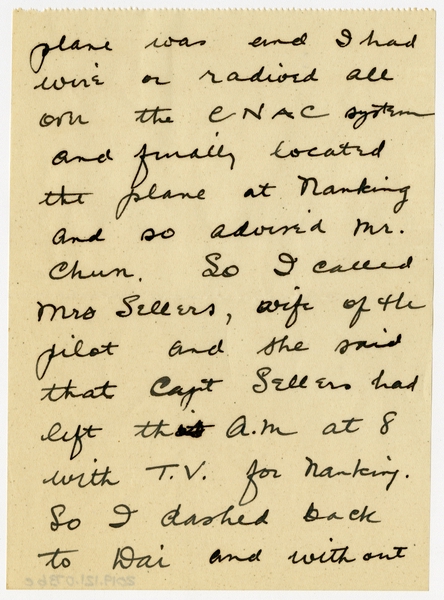 plane was and I had
wire or radioed all
over the CNAC system
and finally located
the plane at Nanking
and so advised Mr.
Chun. So I called
Mrs Sellers, wife of the
pilot and she said
that Capt Sellers had
left this A.M at 8
with T.V. for Nanking.
So I dashed back
to Dai and without
2019.121.0736c